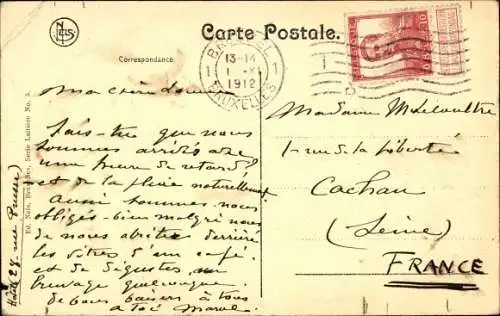 NELS
Carte Postale.
Correspondance
BRUSSEL
13-14
1912
BRUXELLES
10
Ma chère
Sais-tu que nous
sommes arrivés avec
une heure de retard?
et de la pluie naturellement
Aussi sommes-nous
obligés bien malgré nous
de nous abriter derrière
les vitres d'un café
et de déguster un
breuvage quelconque.
de bons baisers à tous
à toi
Madame M. Lecoultre
1 rue de la Liberté
Cachan
(Seine)
FRANCE
Ed. Nels, Bruxelles, Serie
No.
rue